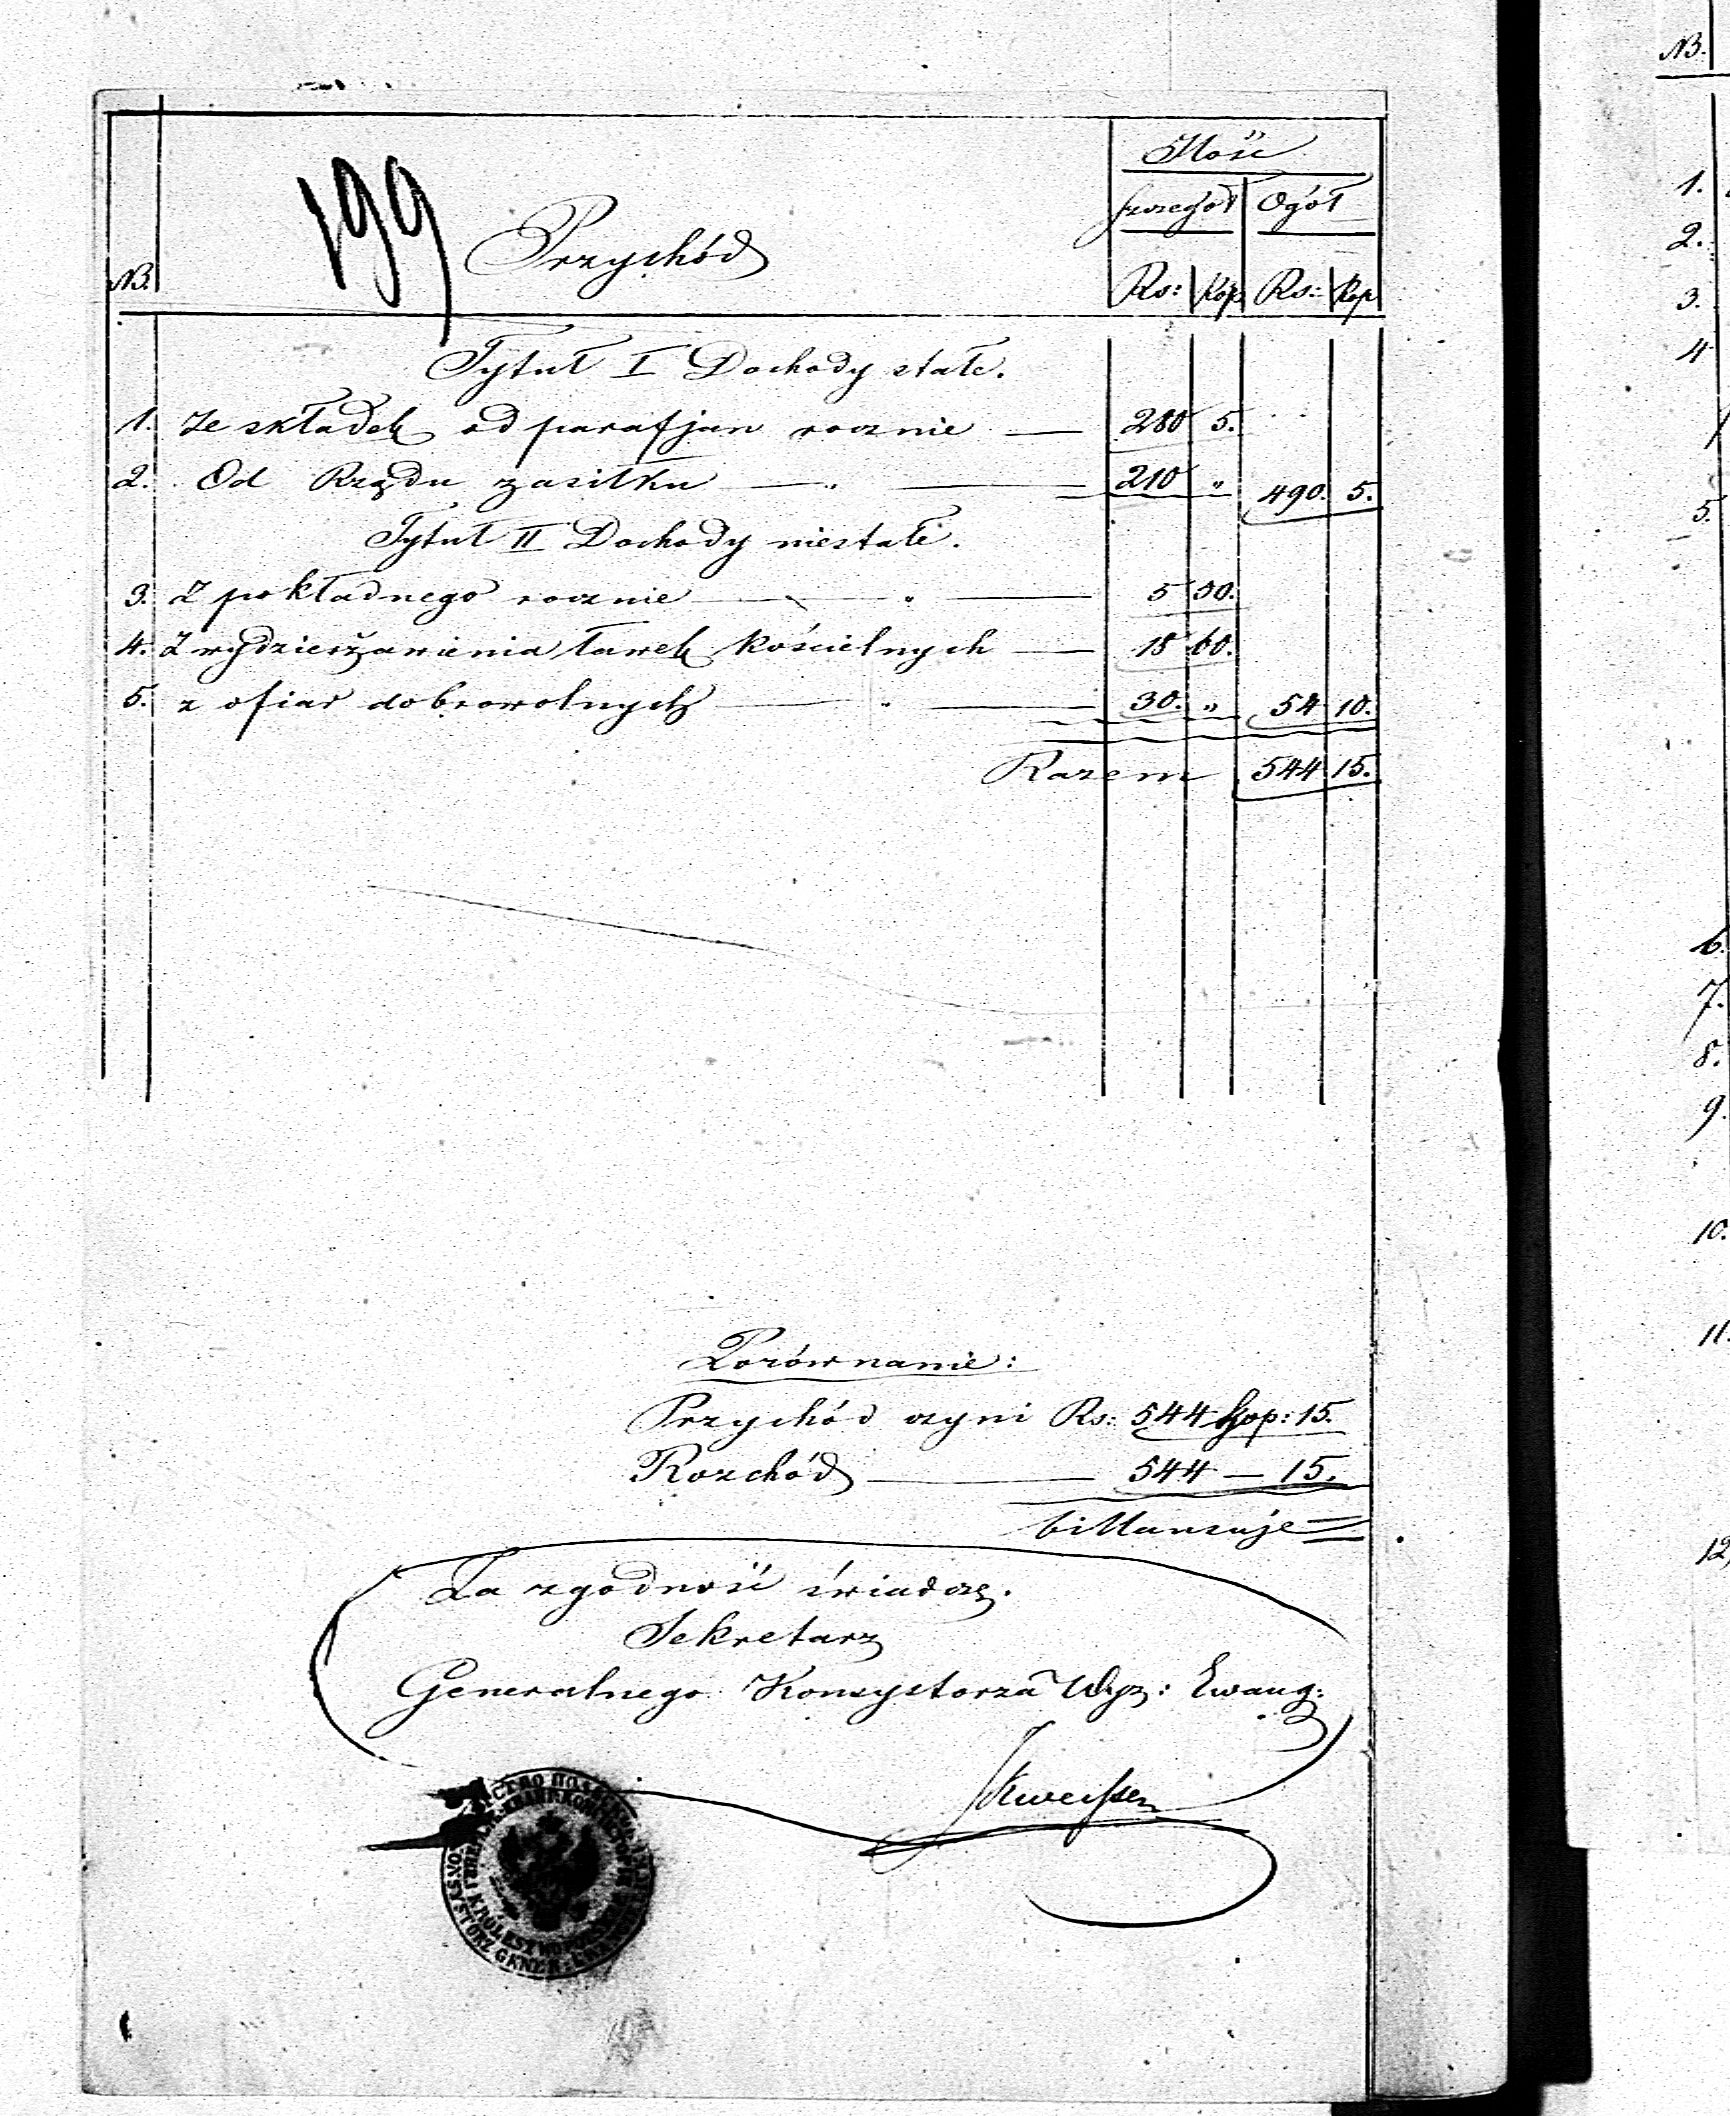 199
Ilość
Przychód
szczegół Ogół
NB. Rs: Kop. Rs: Kop
Tytuł I Dochody stałe.
1. Ze składek od parafjan rocznie — 280 5.
2. Od Rządu zasiłku — „ — 210 „ 490. 5.
Tytuł II Dochody niestałe.
3. Z pokładnego rocznie — „ — 5 50.
4. Z wydzierżawienia ławek kościelnych — 18 60.
5. z ofiar dobrowolnych — „ — 30. „ 54 10.
Razem 544 15.
Porównanie:
Przychód czyni Rs: 544 kop: 15.
Rozchód — 544 — 15.
billansuje
Za zgodność świadczę.
Sekretarz
Generalnego Konsystorza Wyz: Ewang:
NB.
1.
2.
3.
4
5.
6.
7.
8.
9.
10.
11.
12,